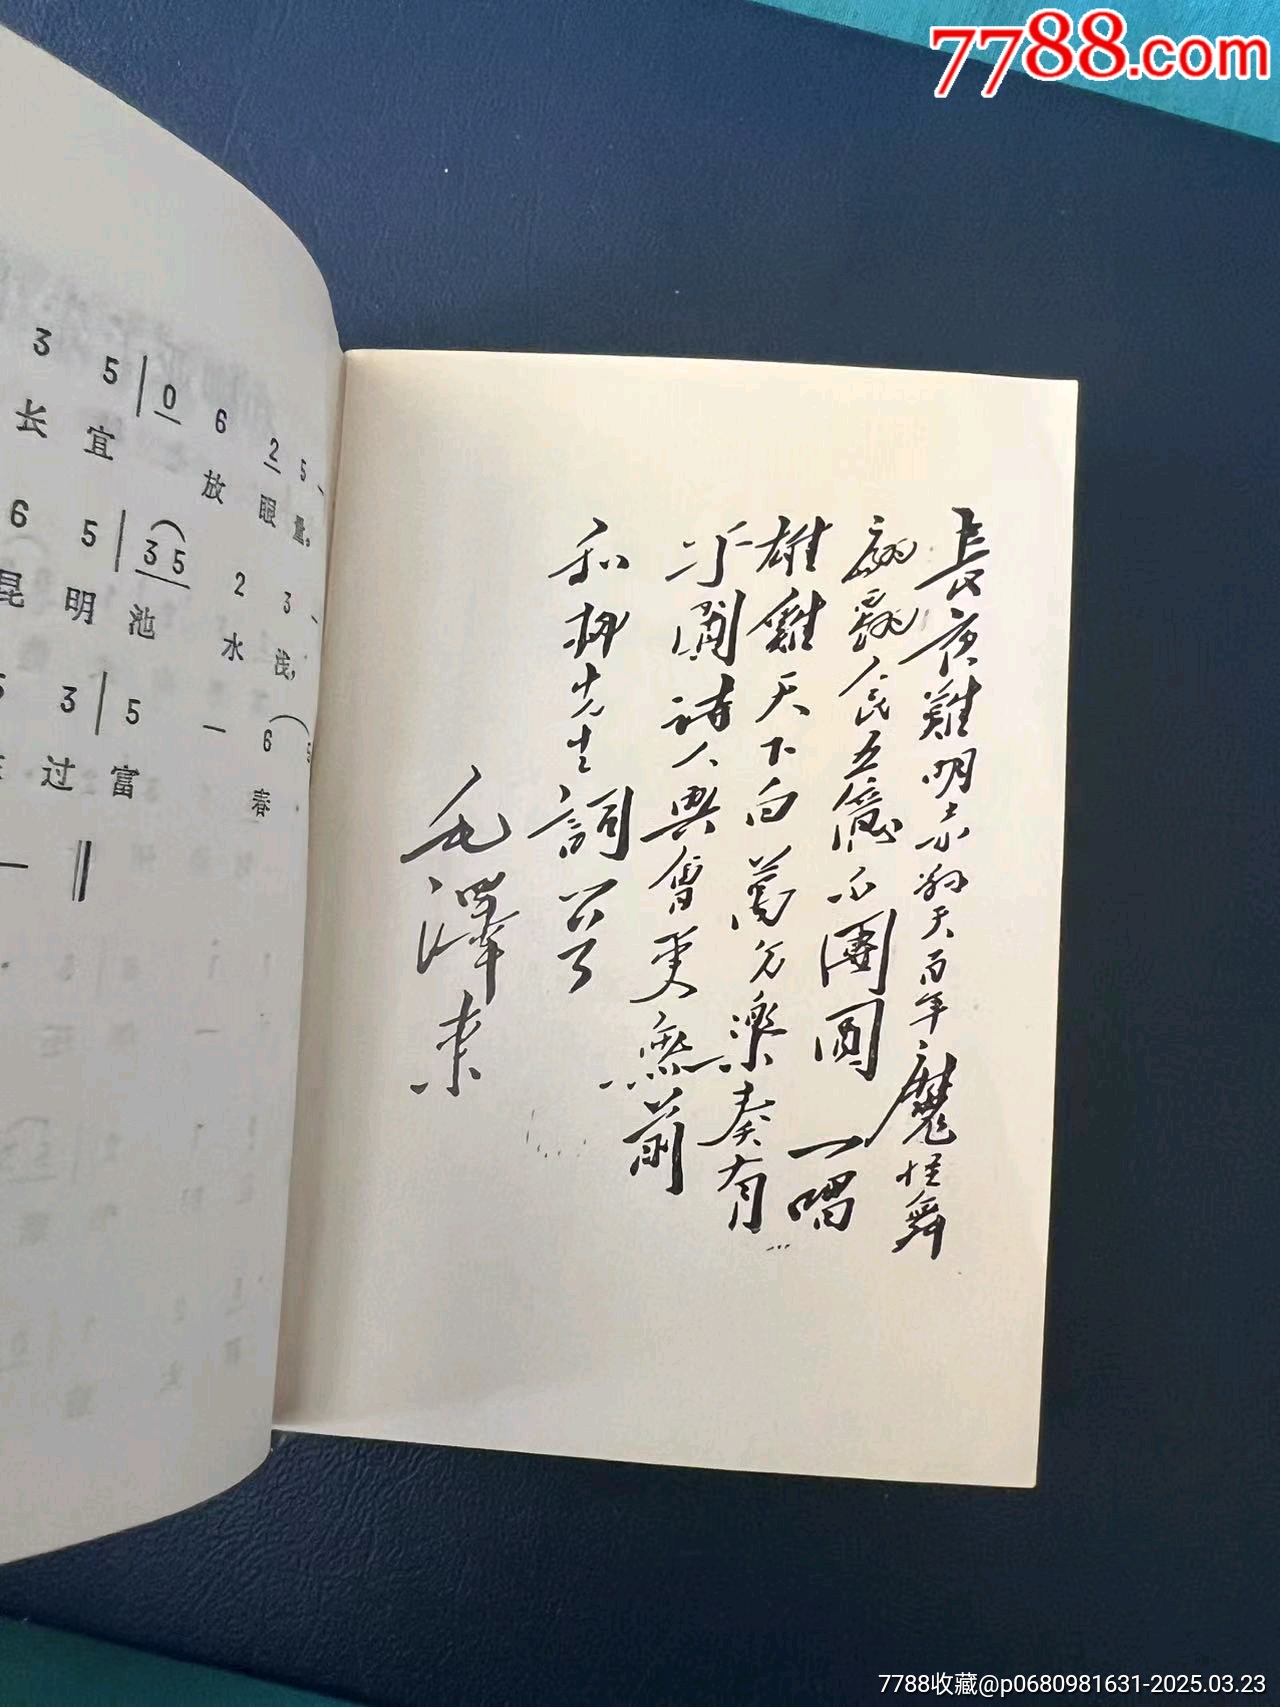 7788.com
3 5 | 0 6 2 5 -
长 宜 放 眼 量,
6 5 | 3 5 2 3 -
昆 明 池 水 浅,
5 3 | 5 - 6 5
过 富 春
長夜難明赤縣天百年魔怪舞
翩躚人民五億不團圓一唱
雄雞天下白萬方樂奏有
于闐詩人興會更無前
和柳先生詞
毛澤東
7788收藏@p0680981631-2025.03.23